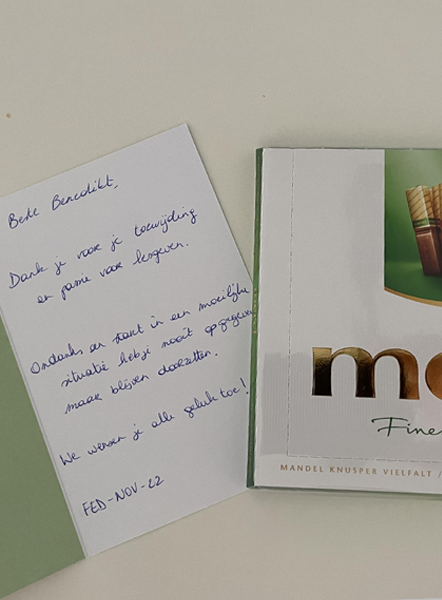 Beste Benedikt,
Dank je voor je toewijding
en passie voor lesgeven.
Ondanks en start in een moeilijke
situatie heb je nooit opgegeven
maar blijven doorzetten.
We wensen je alle geluk toe!
FED-NOV-22
me
Fine
MANDEL KNUSPER VIELFALT /